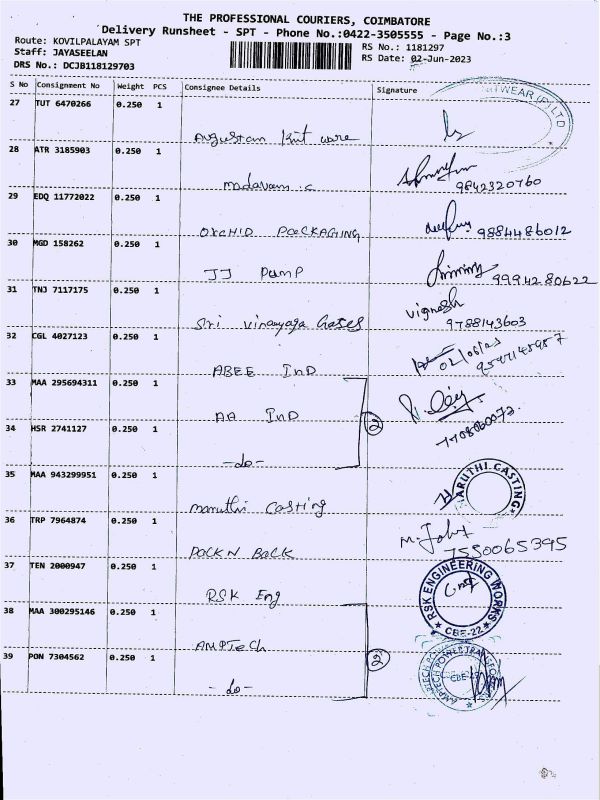 THE PROFESSIONAL COURIERS, COIMBATORE
Delivery Runsheet - SPT - Phone No.:0422-3505555 - Page No.:3
Route: KOVILPALAYAM SPT
Staff: JAYASEELAN
DRS No.: DCJB118129703
RS No.: 1181297
RS Date: 02-Jun-2023
S No Consignment No Weight PCS Consignee Details Signature
27 TUT 6470266 0.250 1
WEAR (P) LTD
Augustan knit ware
28 ATR 3185903 0.250 1
madavam .c
9842320760
29 EDQ 11772022 0.250 1
ORCHID PACKAGING
9884486012
30 MGD 158262 0.250 1
JJ Pump
9994280622
31 TNJ 7117175 0.250 1
vignesh
Sri Vinayaga Gases
9788143603
32 CGL 4027123 0.250 1
02/06/23
ABEE IND
33 MAA 295694311 0.250 1
AA IND
2
34 HSR 2741127 0.250 1
7708060072
-do-
35 MAA 943299951 0.250 1
MARUTHI CASTING
maruthi Casting
36 TRP 7964874 0.250 1
7550065395
PACK N BACK
37 TEN 2000947 0.250 1
RSK ENGINEERING WORKS
CBE-22
RSK Eng
38 MAA 300295146 0.250 1
AMPTech
2
39 PON 7304562 0.250 1
AMPTECH POWER
CBE
-do-